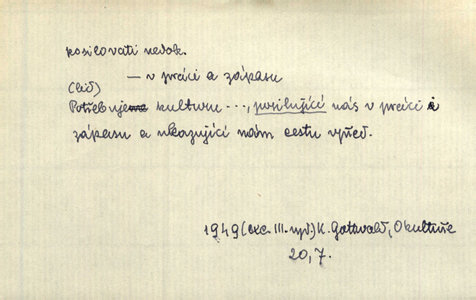 posilovati nedok.
— v práci a zápasu
(lid)
Potřebujeme kulturu ..., posilující nás v práci i
zápasu a ukazující nám cestu vpřed.
1949 (exc. III. vyd.) K. Gottwald, O kultuře
20, 7.